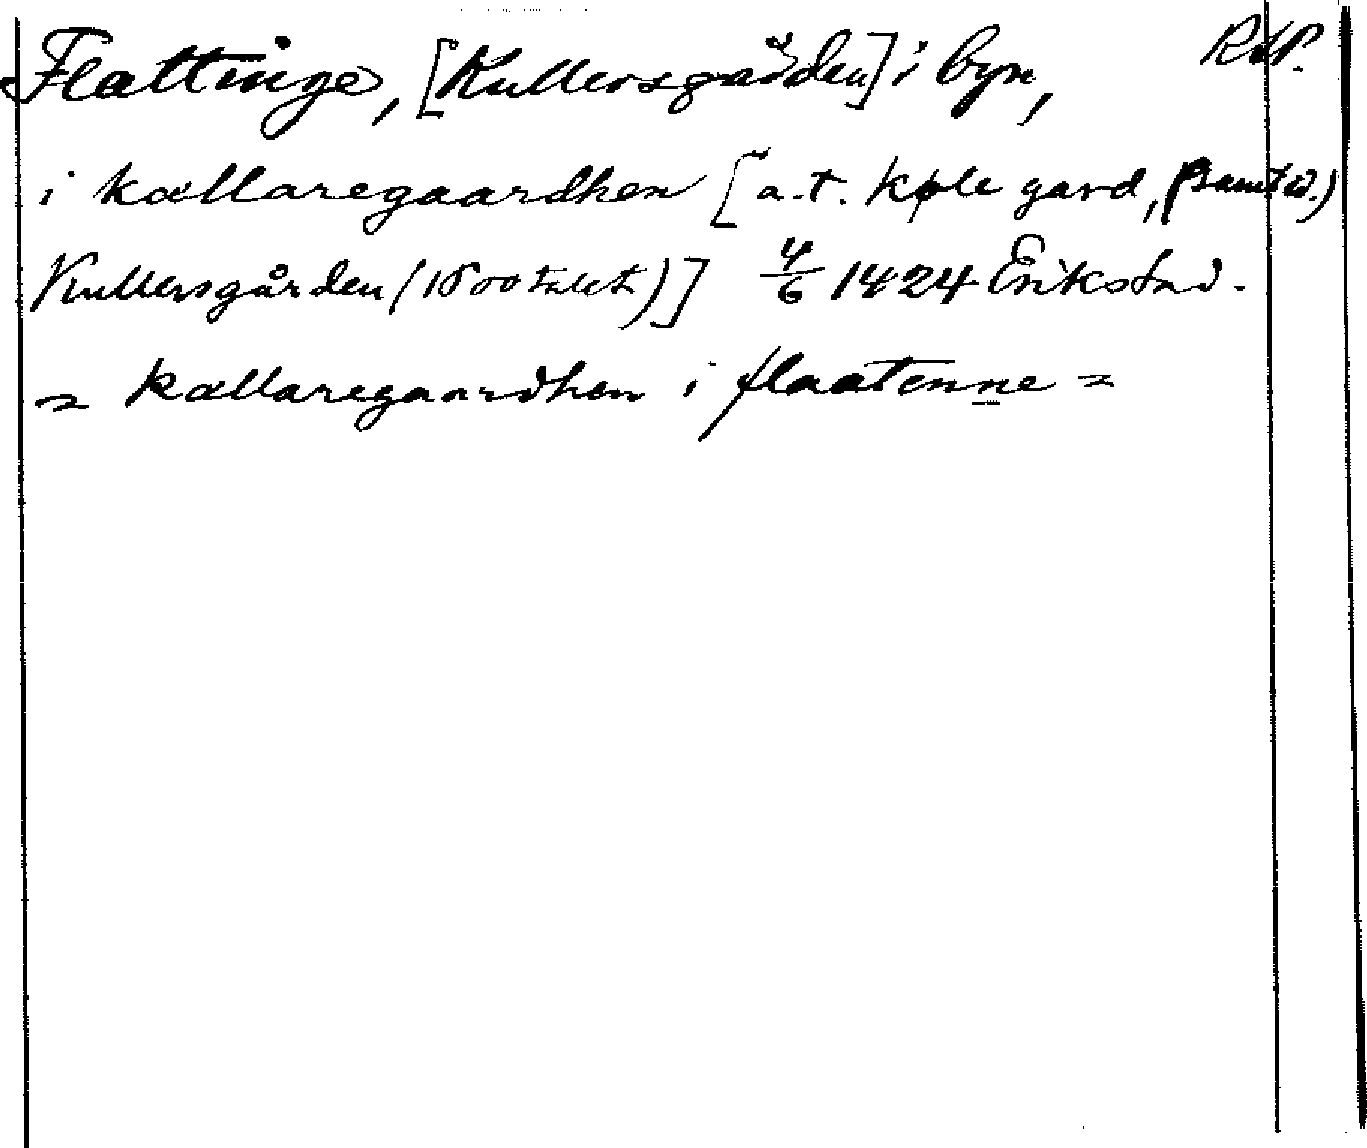 Flattinge, [Kullersgården] i byn, RAP.
i kællaregaardhen [a.t. Køle gard, (samtid.)
Kullersgården (1500talet)] 4/6 1424 Erikstad.
= kællaregaardhen i flaatenne =